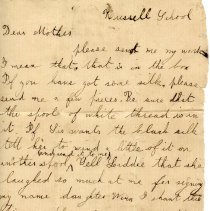 Russell School
Dear Mother
please send me my work
I mean that, that is in the box
If you have got some silk, please
send me a few pieces. Be sure that
the spool of white thread is in
it. If Liz wants the black silk
tell her to wind a little of it on
another spool. Tell Haddie that she
laughed so much at me for signing
my name daughter Mira I want this